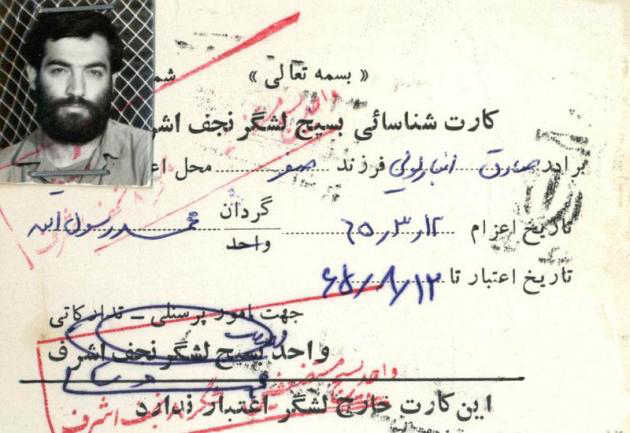 « بسمه تعالی » شم
کارت شناسائی بسیج لشگر نجف اش
برادر صادق انبارلوئی فرزند صفر محل اع
تاریخ اعزام ۶۵٫۳٫۱۲ گردان محمد رسول الله
واحد
تاریخ اعتبار تا
جهت امور پرسنلی – تدارکاتی
واحد بسیج لشگر نجف اشرف
این کارت خارج لشگر اعتبار ندارد